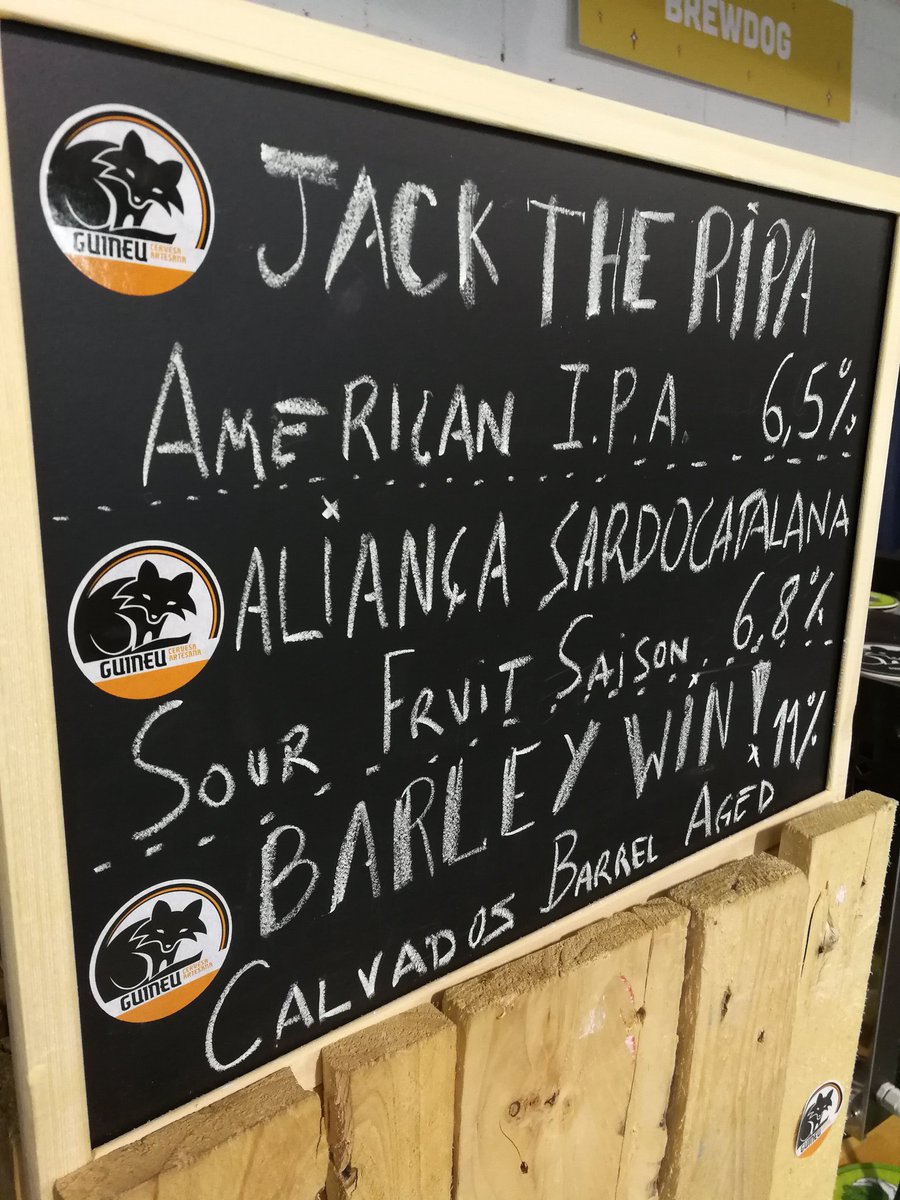 BREWDOG
GUINEU CERVESA ARTESANA
JACK THE RIPA
AMERICAN I.P.A. 6,5%
GUINEU CERVESA ARTESANA
ALIANÇA SARDOCATALANA
SOUR FRUIT SAISON 6,8%
BARLEY WIN! 11%
GUINEU CERVESA ARTESANA
CALVADOS BARREL AGED
GUINEU